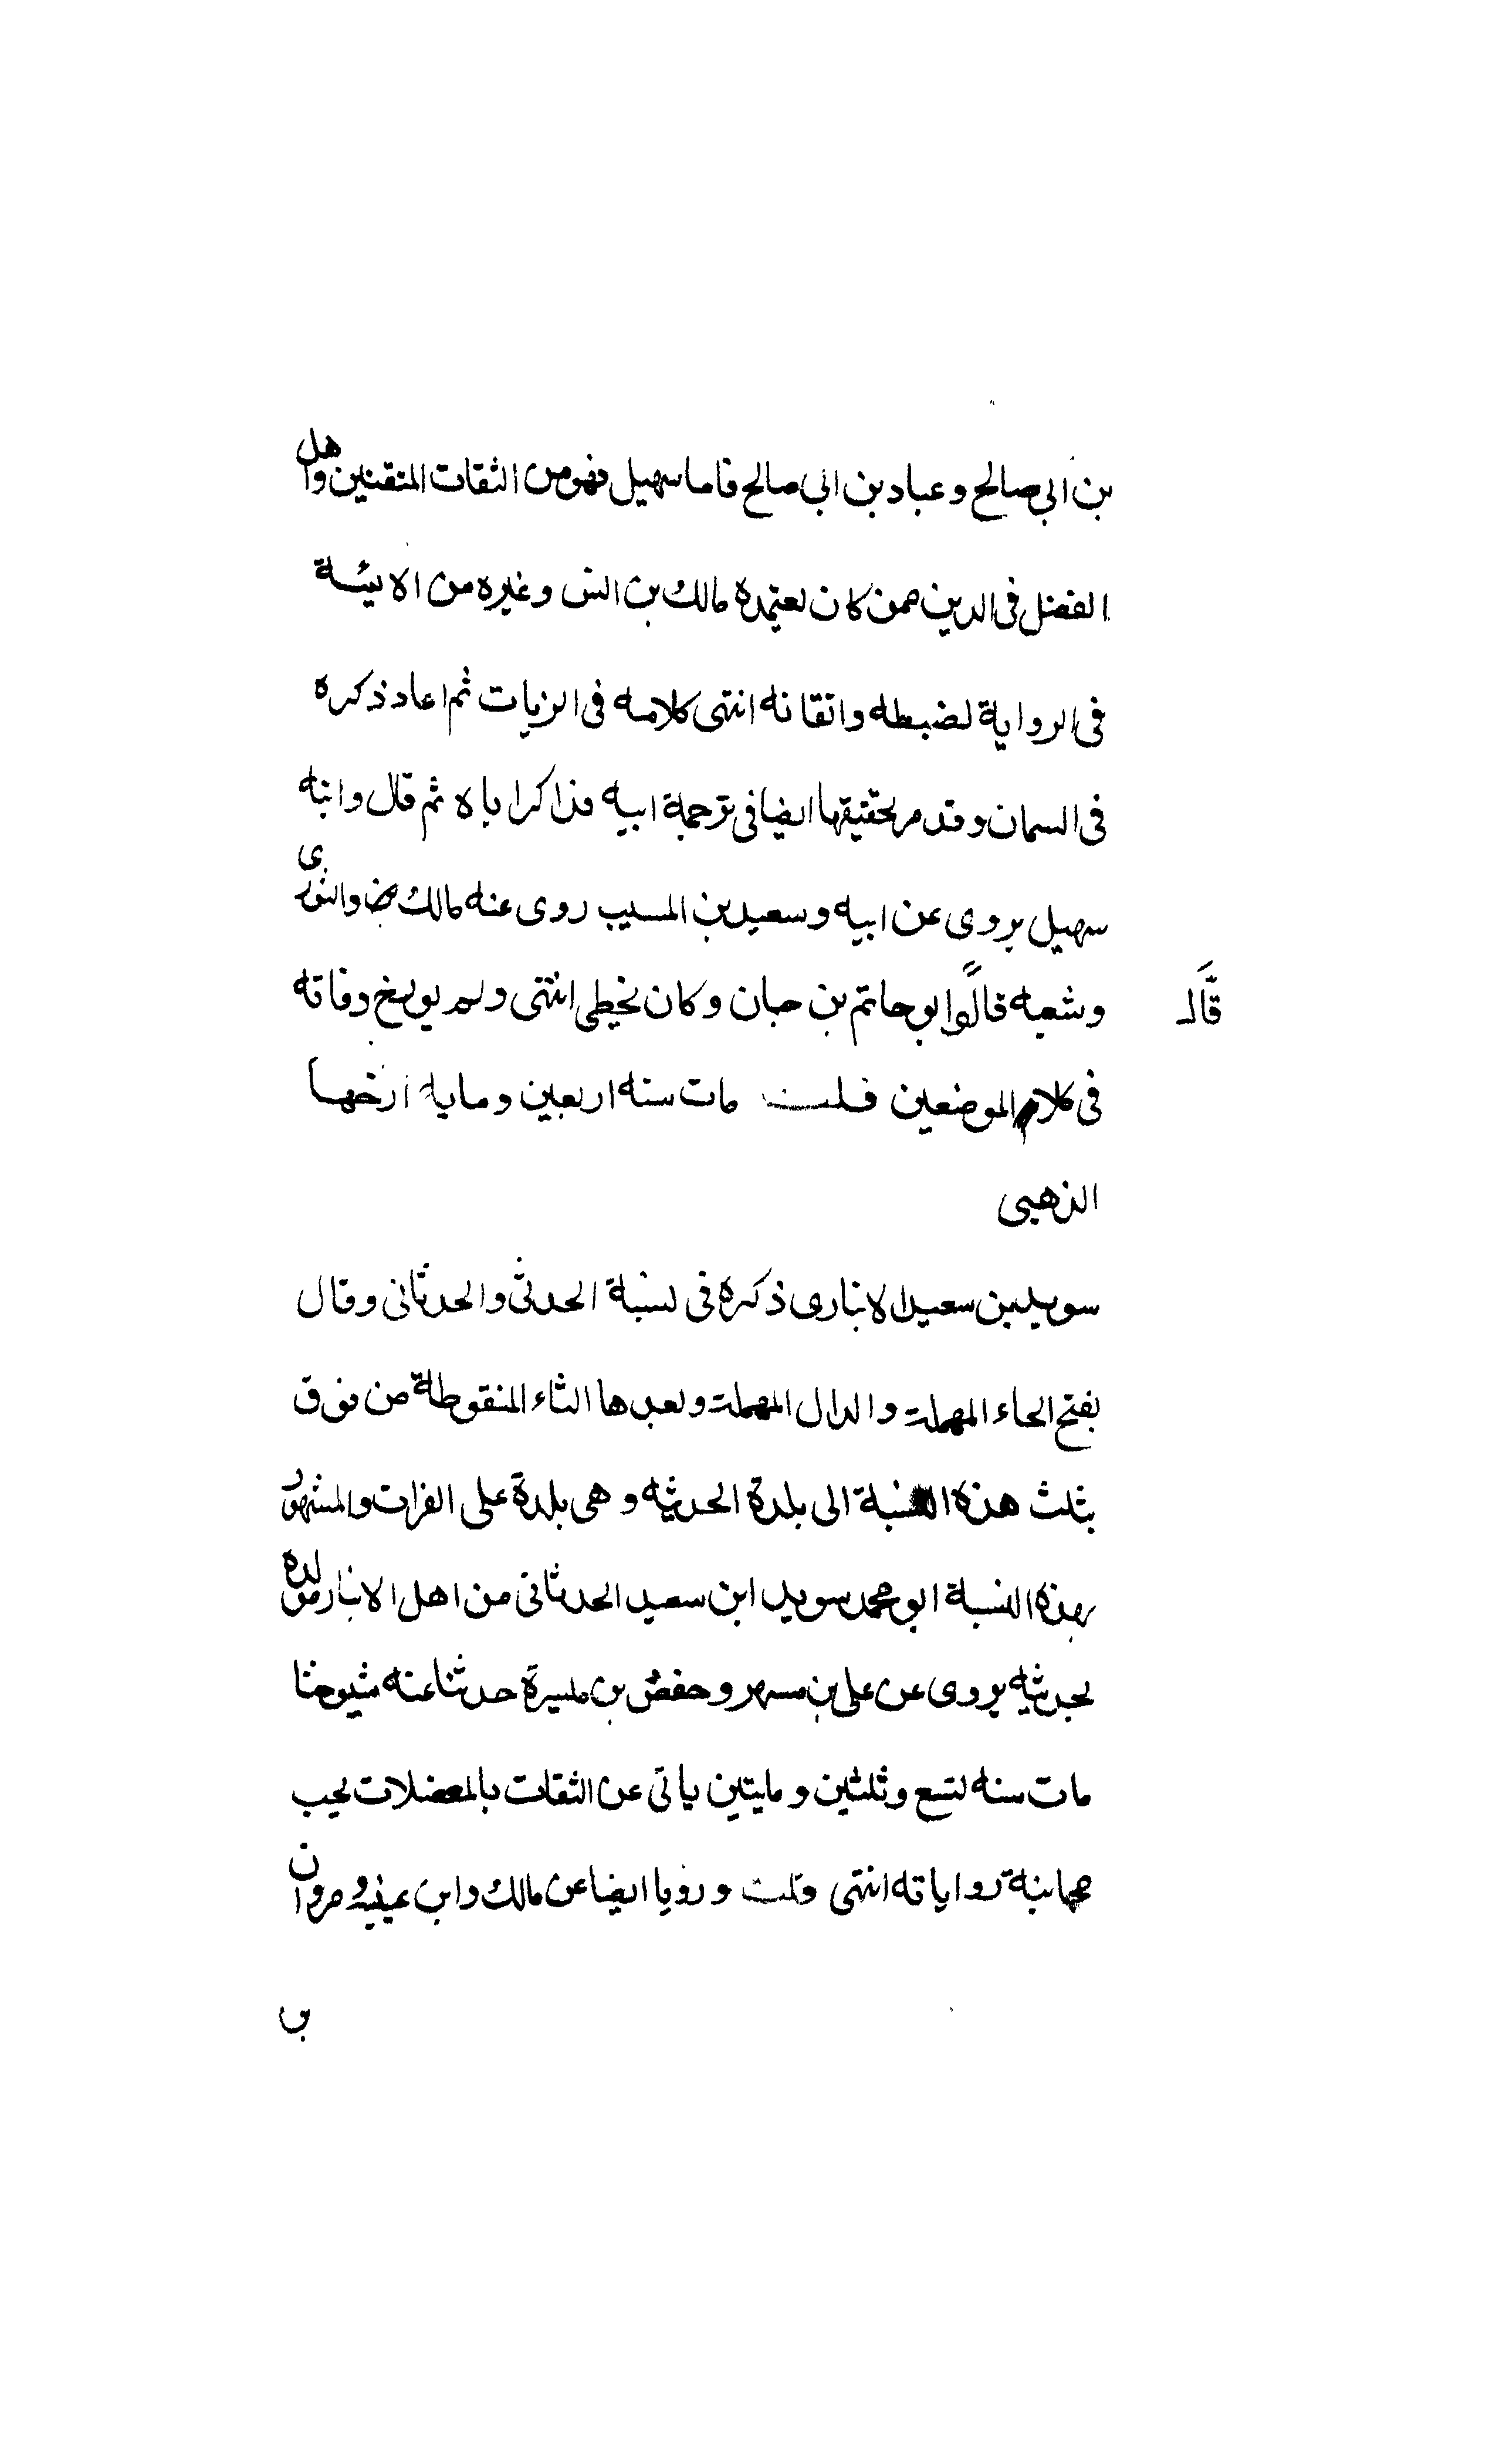 بن ابي صالح وعباد بن ابي صالح فاما سهيل فهو من الثقات المتقنين واهل
الفضل في الدين ممن كان يعتمده مالك بن انس وغيره من الايئة
في الرواية لضبطه واتقانه انتهى كلامه في الزيات ثم اعاد ذكره
في السمان وقد مر تحقيقها ايضا في ترجمة ابيه فذاكرا باه ثم قال وابنه
سهيل يروى عن ابيه وسعيد بن المسيب روى عنه مالك رض والثورى
وشعبه قالوا ابو حاتم بن حبان وكان يخطى انتهى ولم يورخ وفاته
قال
في كلام الموضعين قلت مات سنه اربعين وماية ارخها
الذهبى
سويد بن سعيد الانبارى ذكره في نسبة الحدثى والحدثانى وقال
بفتح الحاء المهملة والدال المهملة وبعدها الثاء المنقوطة من فوق
بثلث هذه النسبة الى بلدة الحديثه وهى بلدة على الفرات والمشهور
بهذه النسبة ابو محمد سويد ابن سعيد الحدثانى من اهل الانبار مولده
بحديثه يروى عن على بن مسهر وحفص بن ميسرة حدثنا عنه شيوخنا
مات سنه تسع وثلثين ومايتين ياتى عن الثقات بالمعضلات يجب
مجانبة رواياته انتهى قلت ورويا ايضا عن مالك وابن عيينه ومروان
بن